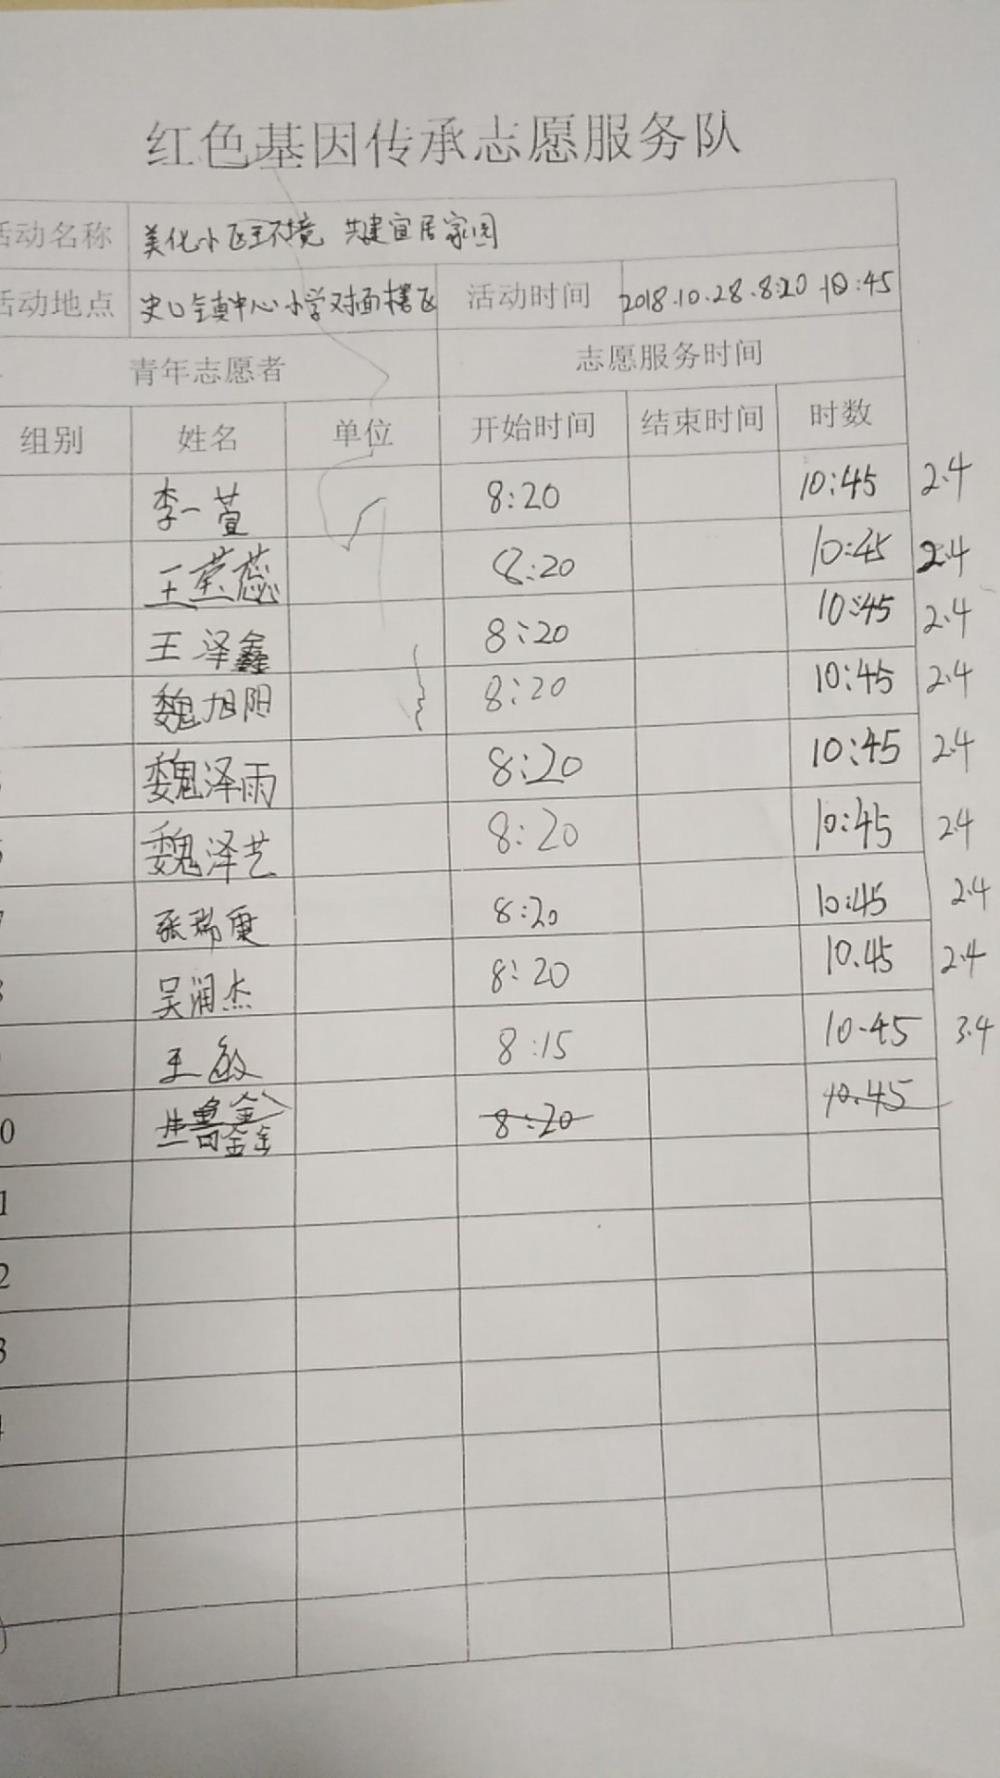 红色基因传承志愿服务队
活动名称 美化小区环境 共建宜居家园
活动地点 史口镇中心小学对面楼区 活动时间 2018.10.28.8:20-10:45
青年志愿者 志愿服务时间
组别 姓名 单位 开始时间 结束时间 时数
李一萱 8:20 10:45 2.4
王荧蕊 8:20 10:45 2.4
王泽鑫 8:20 10:45 2.4
魏旭阳 8:20 10:45 2.4
魏泽雨 8:20 10:45 2.4
魏泽艺 8:20 10:45 2.4
7 张瑞 8:20 10:45 2.4
8 吴润杰 8:20 10.45 2.4
王敏 8:15 10.45 3.4
0 8:20 10.45
1
2
3